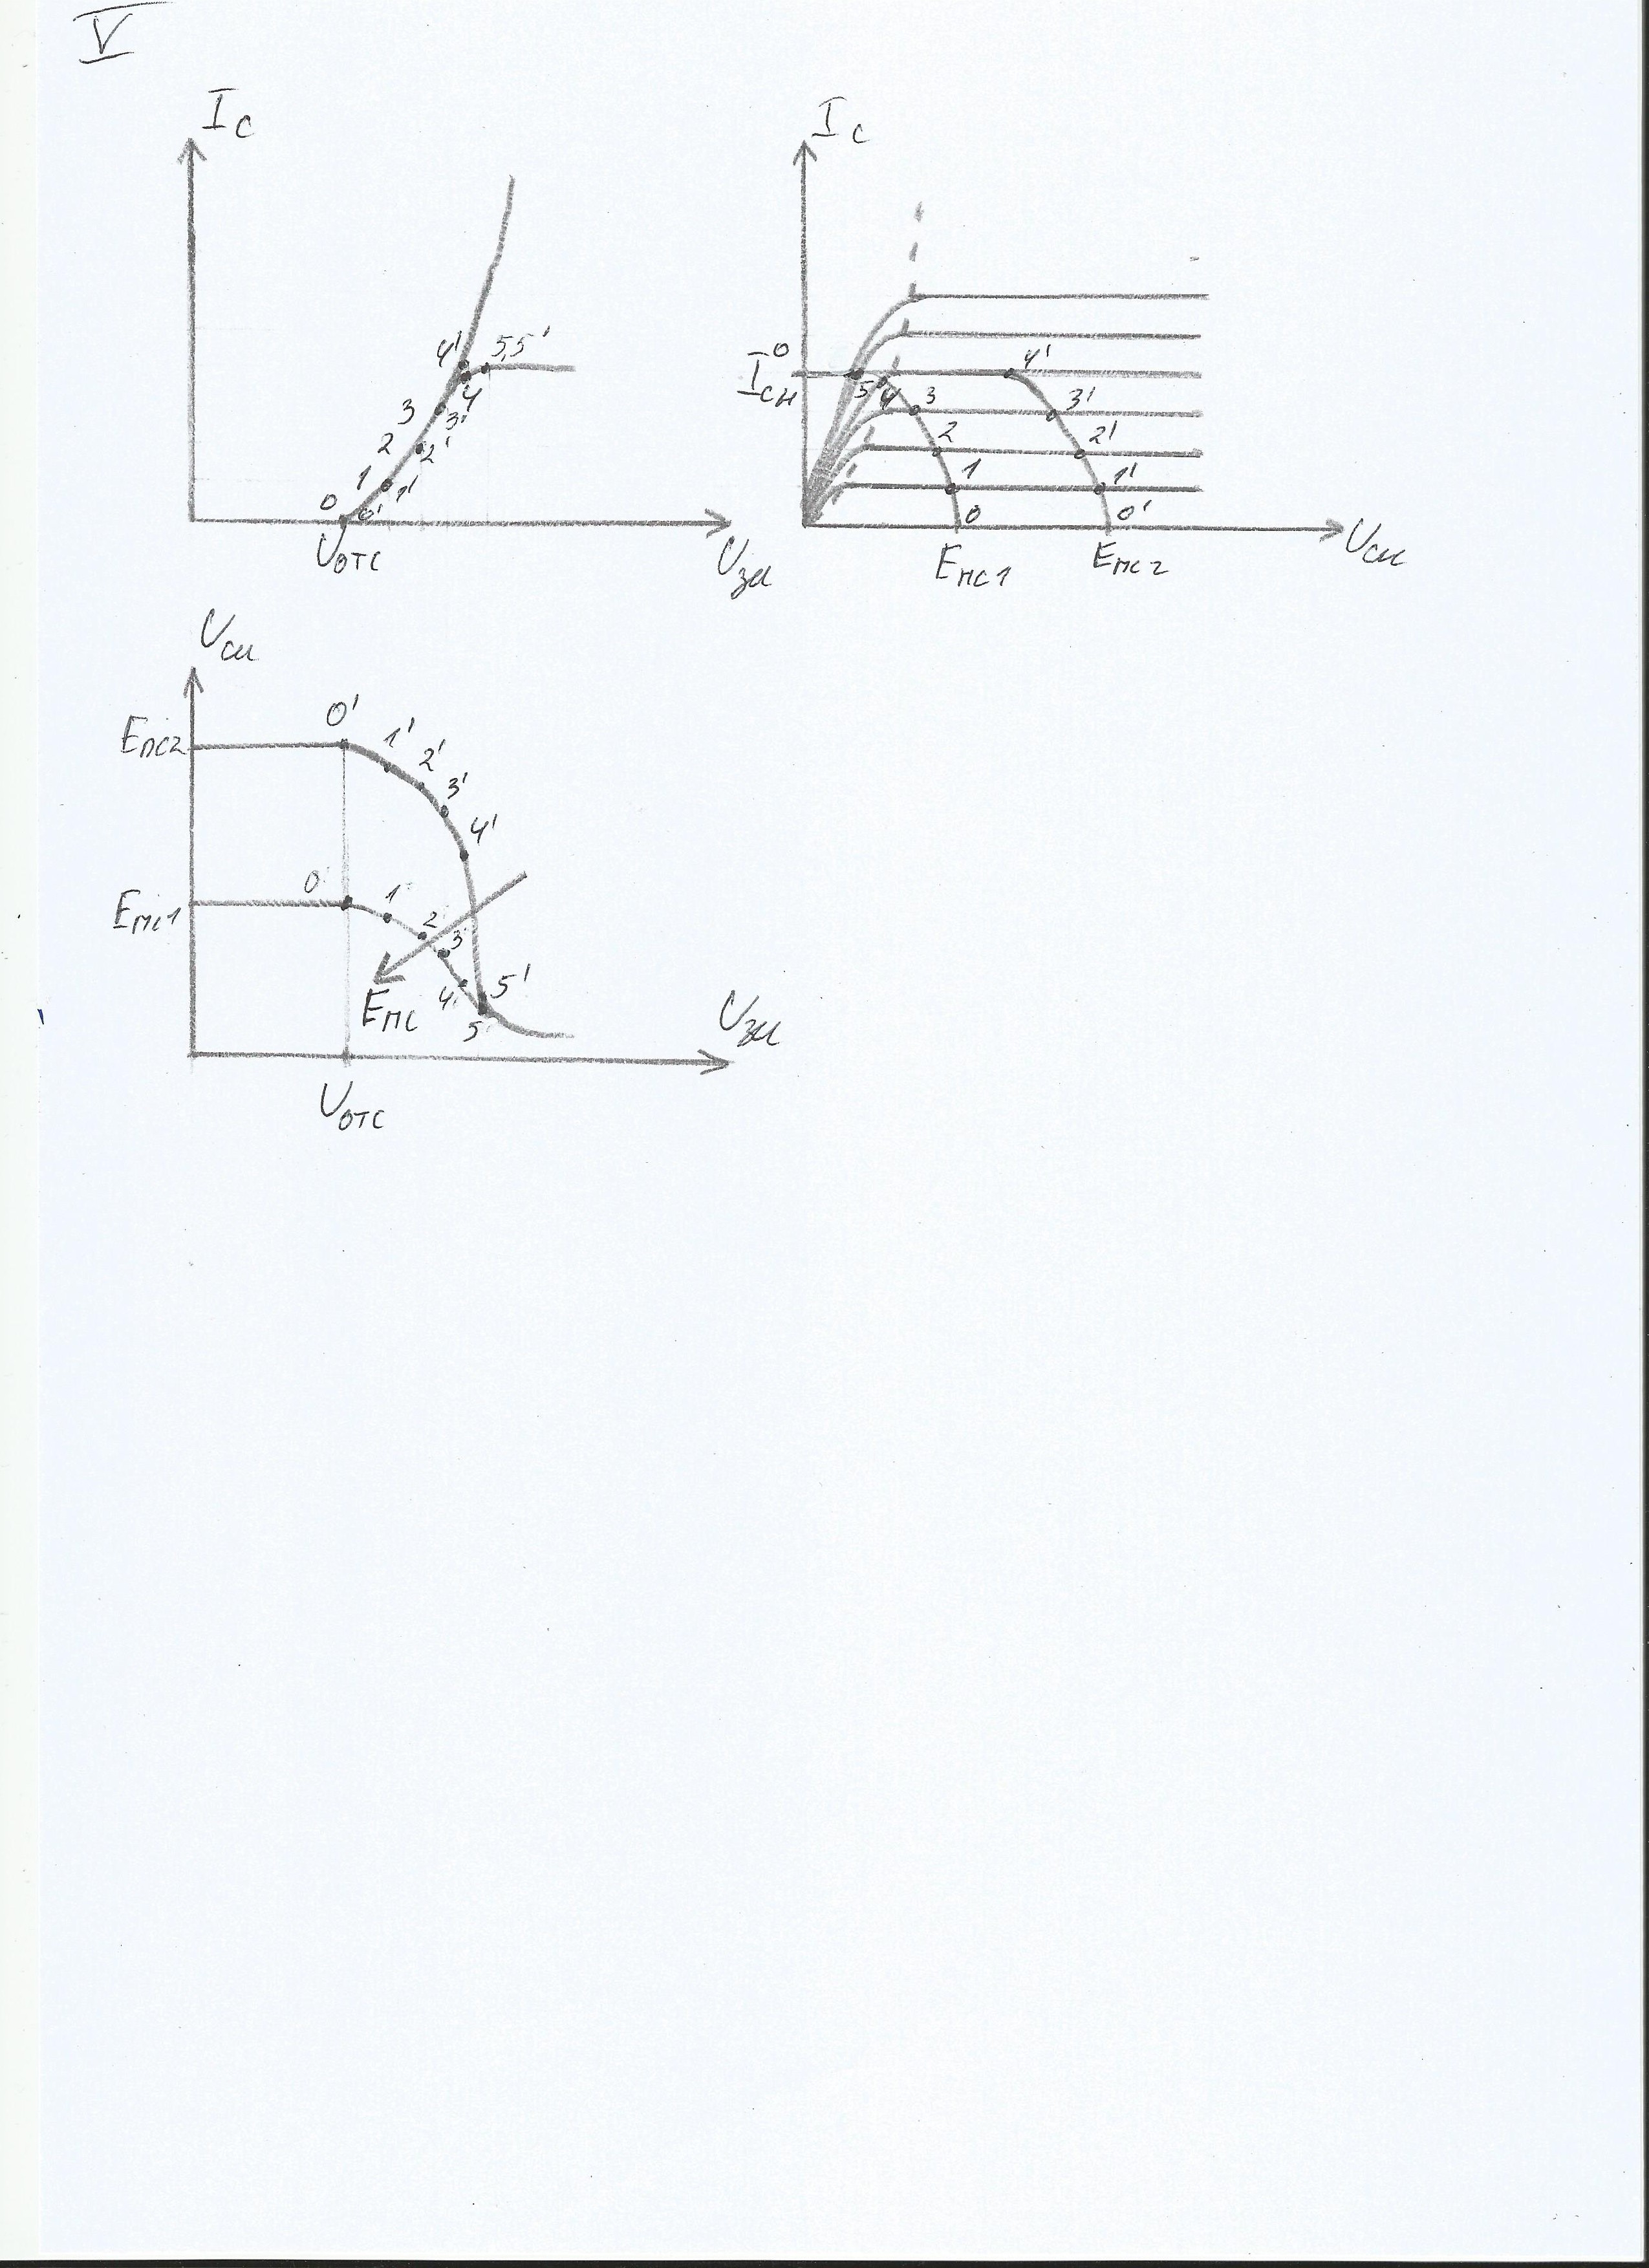 V
Iс
4' 5,5'
3 4
3'
2 2'
1 1'
0 0'
Uотс
Uзи
Iс
I⁰сн
5 4 3 4' 3'
2 2'
1 1'
0 0'
Eпс1 Eпс2
Uси
Uси
Eпс2
0' 1' 2' 3' 4'
Eпс1
0 1 2 3
4 5'
5
Eпс
Uзи
Uотс